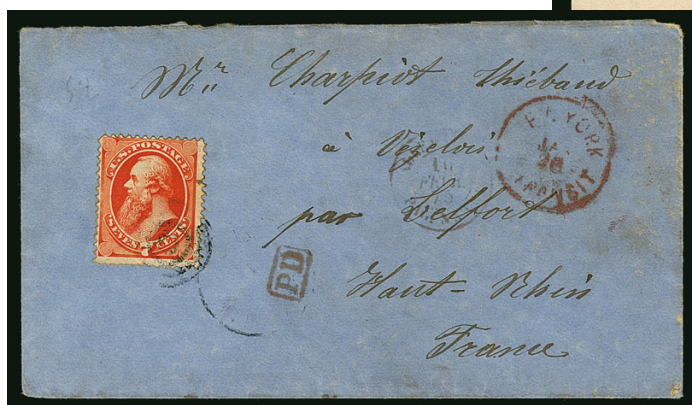 54
Mr. Charpiot Thiébaud
à Vézelois
par Belfort
Haut-Rhin
France
U.S. POSTAGE
SEVEN 7 CENTS
P.D
N. YORK
JA
28
TRANSIT